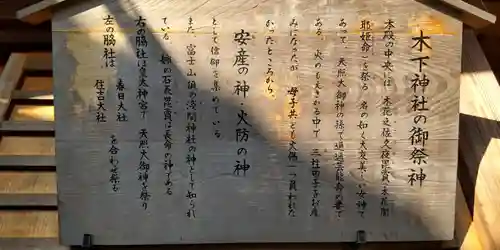 木下神社の御祭神
本殿の中央には 木花之佐久夜毘賣(木花開
耶姫命)を祭る 名の如く大変美しい女神で
あって 天照大御神の孫で邇邇芸能命の妻で
ある 火のもえさかる中で 三柱の御子をお産
みになったが 母子共にも火傷一つ負われな
かったところから、
安産の神・火防の神
として信仰を集めている
また、富士山頂の浅間神社の神として知られ
ている 姉の石長毘賣は長命の神である
右の脇社は皇太神宮で 天照大御神を祭り
左の脇社は 春日大社
住吉大社 を合わせ祭る